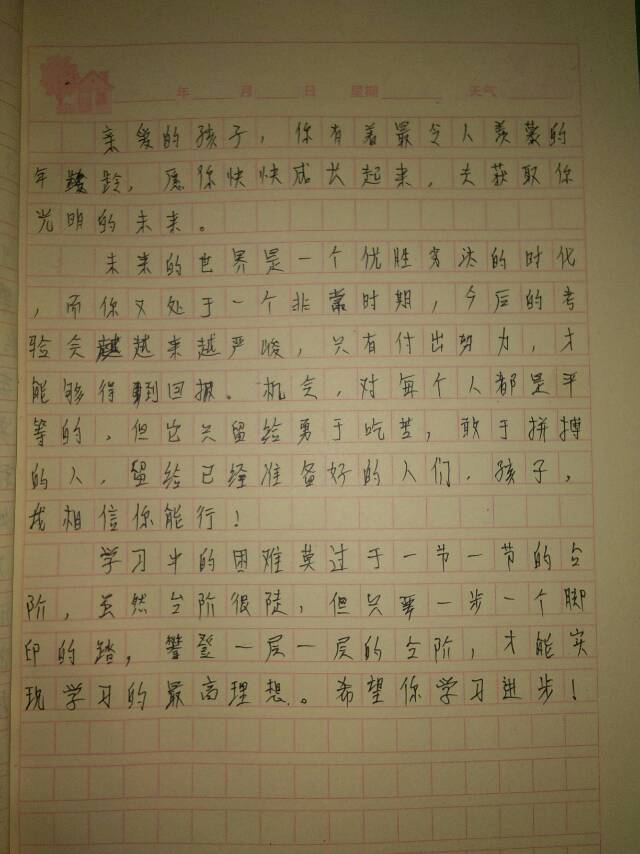 年 月 日 星期 天气
亲爱的孩子，你有着最令人羡慕的
年龄，愿你快快成长起来，去获取你
光明的未来。
未来的世界是一个优胜劣汰的时代
，而你又处于一个非常时期，今后的考
验会越来越严峻，只有付出努力，才
能够得到回报。机会，对每个人都是平
等的，但它只留给勇于吃苦，敢于拼搏
的人，留给已经准备好的人们，孩子，
我相信你能行！
学习中的困难莫过于一节一节的台
阶，虽然台阶很陡，但只要一步一个脚
印的踏，攀登一层一层的台阶，才能实
现学习的最高理想。希望你学习进步！